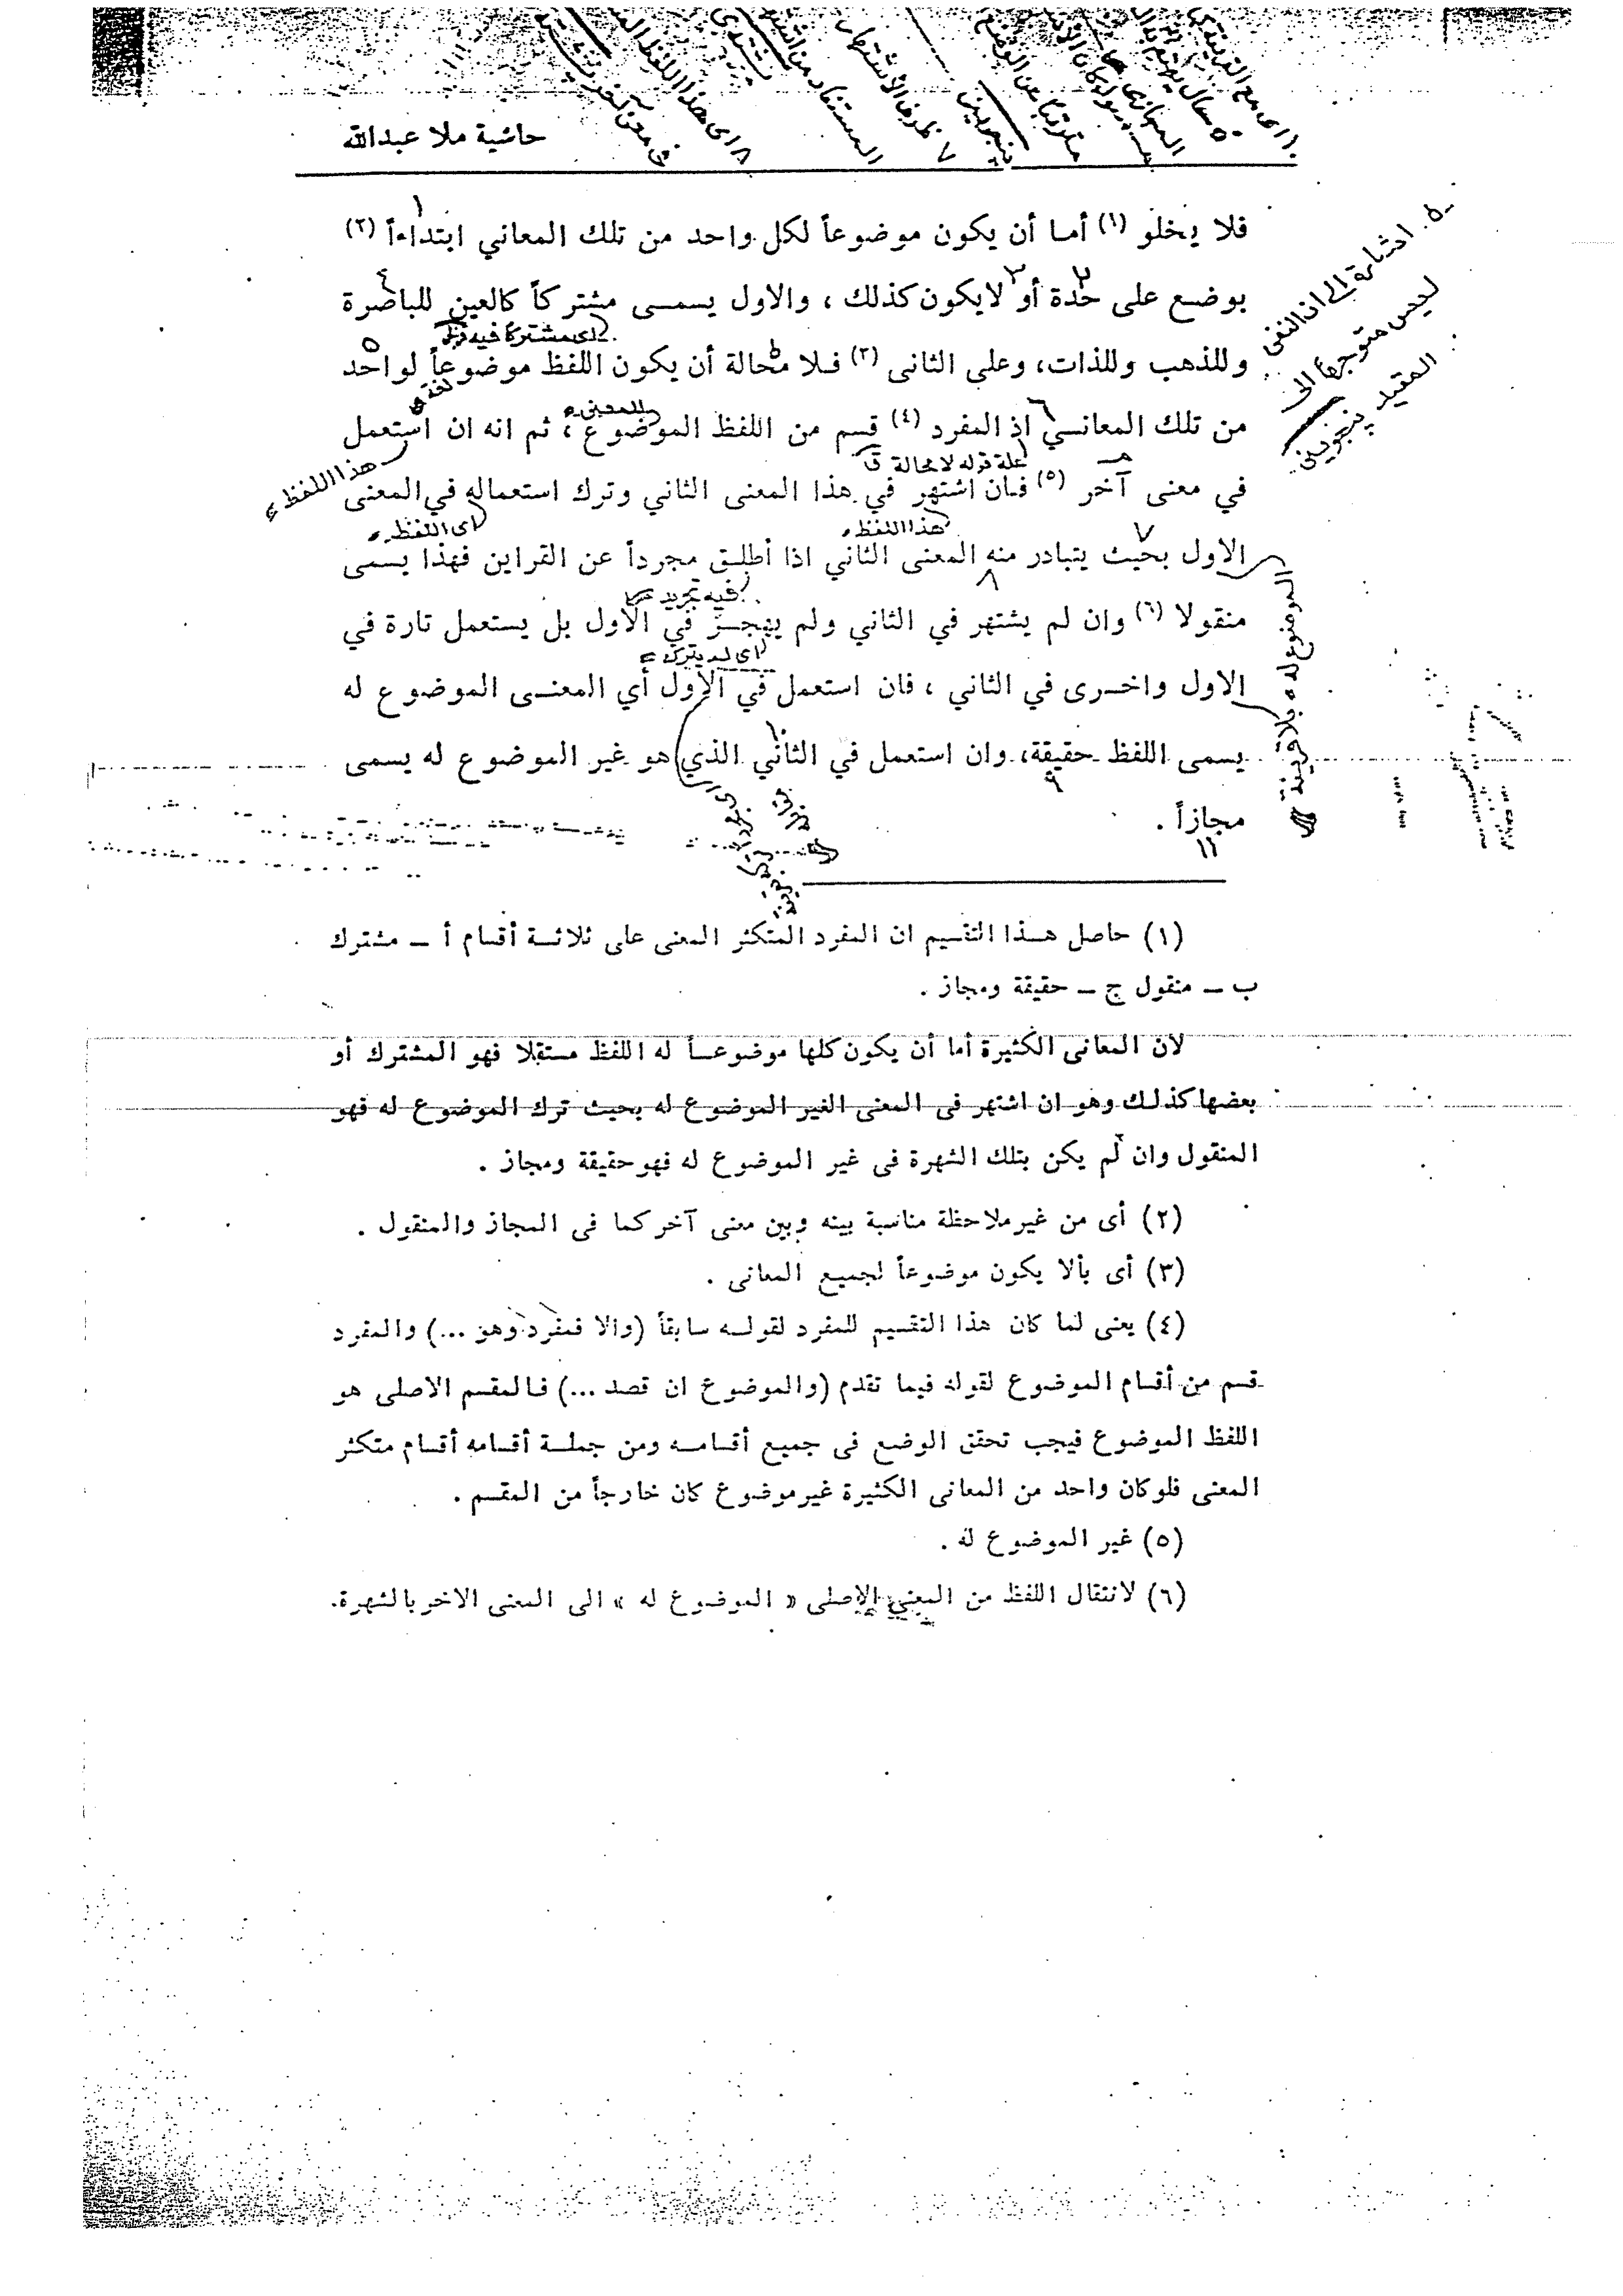 حاشية ملا عبدالله
فلا يخلو (١) أما أن يكون موضوعاً لكل واحد من تلك المعاني ابتداءاً (٢)
بوضع على حدة أو لايكون كذلك ، والاول يسمى مشتركاً كالعين للباصرة
وللذهب وللذات، وعلى الثانى (٣) فلا محالة أن يكون اللفظ موضوعاً لواحد
من تلك المعاني اذ المفرد (٤) قسم من اللفظ الموضوع ، ثم انه ان استعمل
علة قوله لا محالة
هذا اللفظ
في معنى آخر (٥) فان اشتهر في هذا المعنى الثاني وترك استعماله في المعنى
هذا اللفظ
اى اللفظ
الاول بحيث يتبادر منه المعنى الثاني اذا أطلق مجرداً عن القراين فهذا يسمى
فيه تجريد
منقولا (٦) وان لم يشتهر في الثاني ولم يهجر في الاول بل يستعمل تارة في
اى لم يترك
الاول واخرى في الثاني ، فان استعمل في الاول أي المعنى الموضوع له
يسمى اللفظ حقيقة، وان استعمل في الثاني الذي هو غير الموضوع له يسمى
مجازاً .
اشارة الى ان النفى
ليس متوجهاً الى
المقيد پنجوينى
الموضوع له بلا قرينة
(١) حاصل هذا التقسيم ان المفرد المتكثر المعنى على ثلاثة أقسام أ ــ مشترك
ب ــ منقول ج ــ حقيقة ومجاز .
لان المعانى الكثيرة أما أن يكون كلها موضوعاً له اللفظ مستقلا فهو المشترك أو
بعضها كذلك وهو ان اشتهر فى المعنى الغير الموضوع له بحيث ترك الموضوع له فهو
المنقول وان لم يكن بتلك الشهرة فى غير الموضوع له فهو حقيقة ومجاز .
(٢) أى من غير ملاحظة مناسبة بينه وبين معنى آخر كما فى المجاز والمنقول .
(٣) أى بألا يكون موضوعاً لجميع المعانى .
(٤) يعنى لما كان هذا التقسيم للمفرد لقوله سابقاً (والا فمفرد وهو ...) والمفرد
قسم من أقسام الموضوع لقوله فيما تقدم (والموضوع ان قصد ...) فالمقسم الاصلى هو
اللفظ الموضوع فيجب تحقق الوضع فى جميع أقسامه ومن جملة أقسامه أقسام متكثر
المعنى فلو كان واحد من المعانى الكثيرة غير موضوع كان خارجاً من المقسم .
(٥) غير الموضوع له .
(٦) لانتقال اللفظ من المعنى الاصلى « الموضوع له » الى المعنى الاخر بالشهرة.